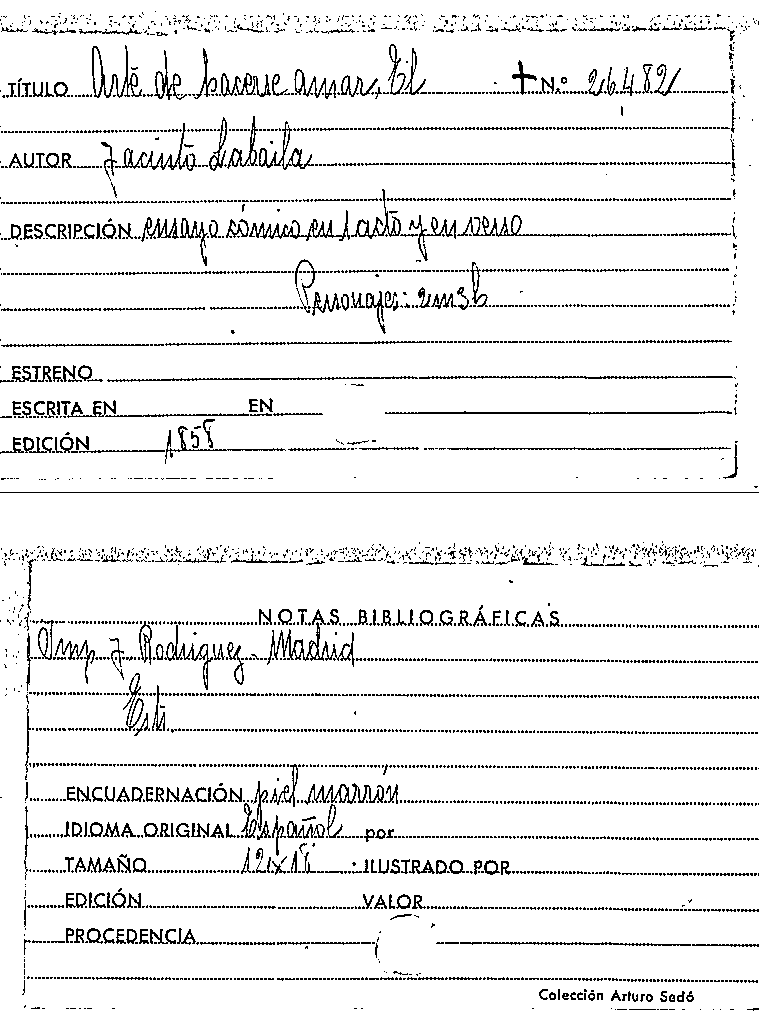 TÍTULO Arte de hacerse amar, El + N.º 26482
AUTOR Jacinto Labaila
DESCRIPCIÓN ensayo cómico en 1 acto y en verso
Personajes: 2m3h
ESTRENO
ESCRITA EN EN
EDICIÓN 1858
NOTAS BIBLIOGRÁFICAS
Imp J. Rodriguez - Madrid
ENCUADERNACIÓN piel marrón
IDIOMA ORIGINAL Español por
TAMAÑO 12x18 ILUSTRADO POR
EDICIÓN VALOR
PROCEDENCIA
Colección Arturo Sedó